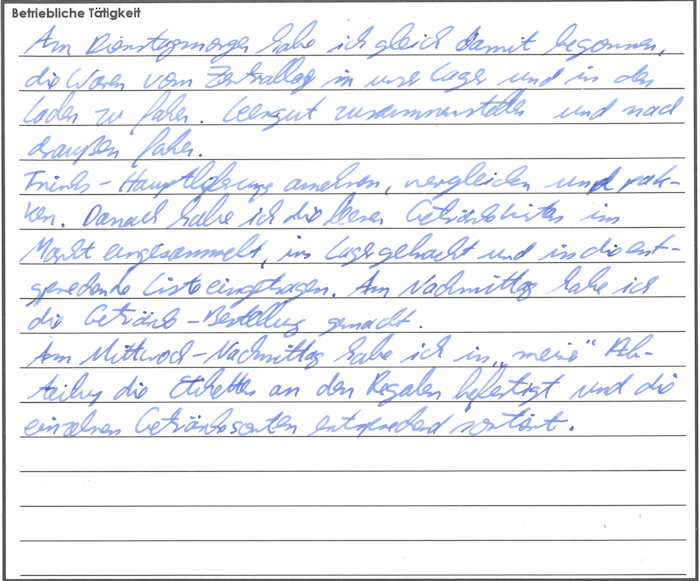 Betriebliche Tätigkeit
Am Dienstagmorgen habe ich gleich damit begonnen,
die Waren vom Zentrallag in unser Lager und in den
Laden zu fahren. Leergut zusammenstellen und nach
draußen fahren.
Trinks-Hauptlieferung annehmen, vergleichen und pak-
ken. Danach habe ich die leeren Getränkekisten im
Markt eingesammelt, ins Lager gebracht und in die ent-
sprechende Liste eingetragen. Am Nachmittag habe ich
die Getränke-Bestellung gemacht.
Am Mittwoch-Nachmittag habe ich in "meine" Ab-
teilung die Etiketten an den Regalen befestigt und die
einzelnen Getränkesorten entsprechend sortiert.